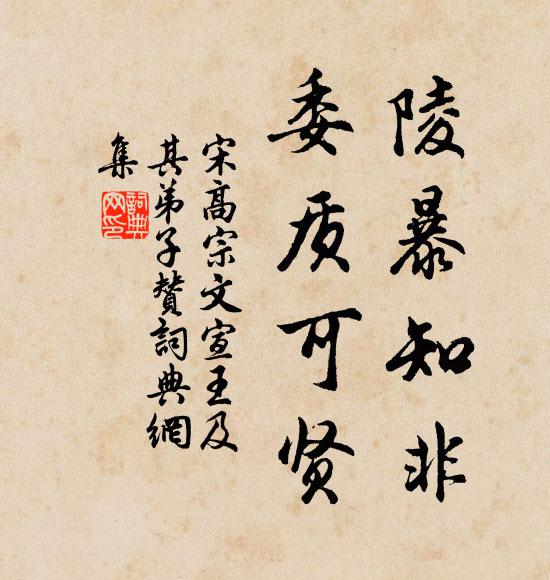 陵暴知非
委质可贤
宋高宗文宣王及
其弟子赞词典網
集
詞典
网印